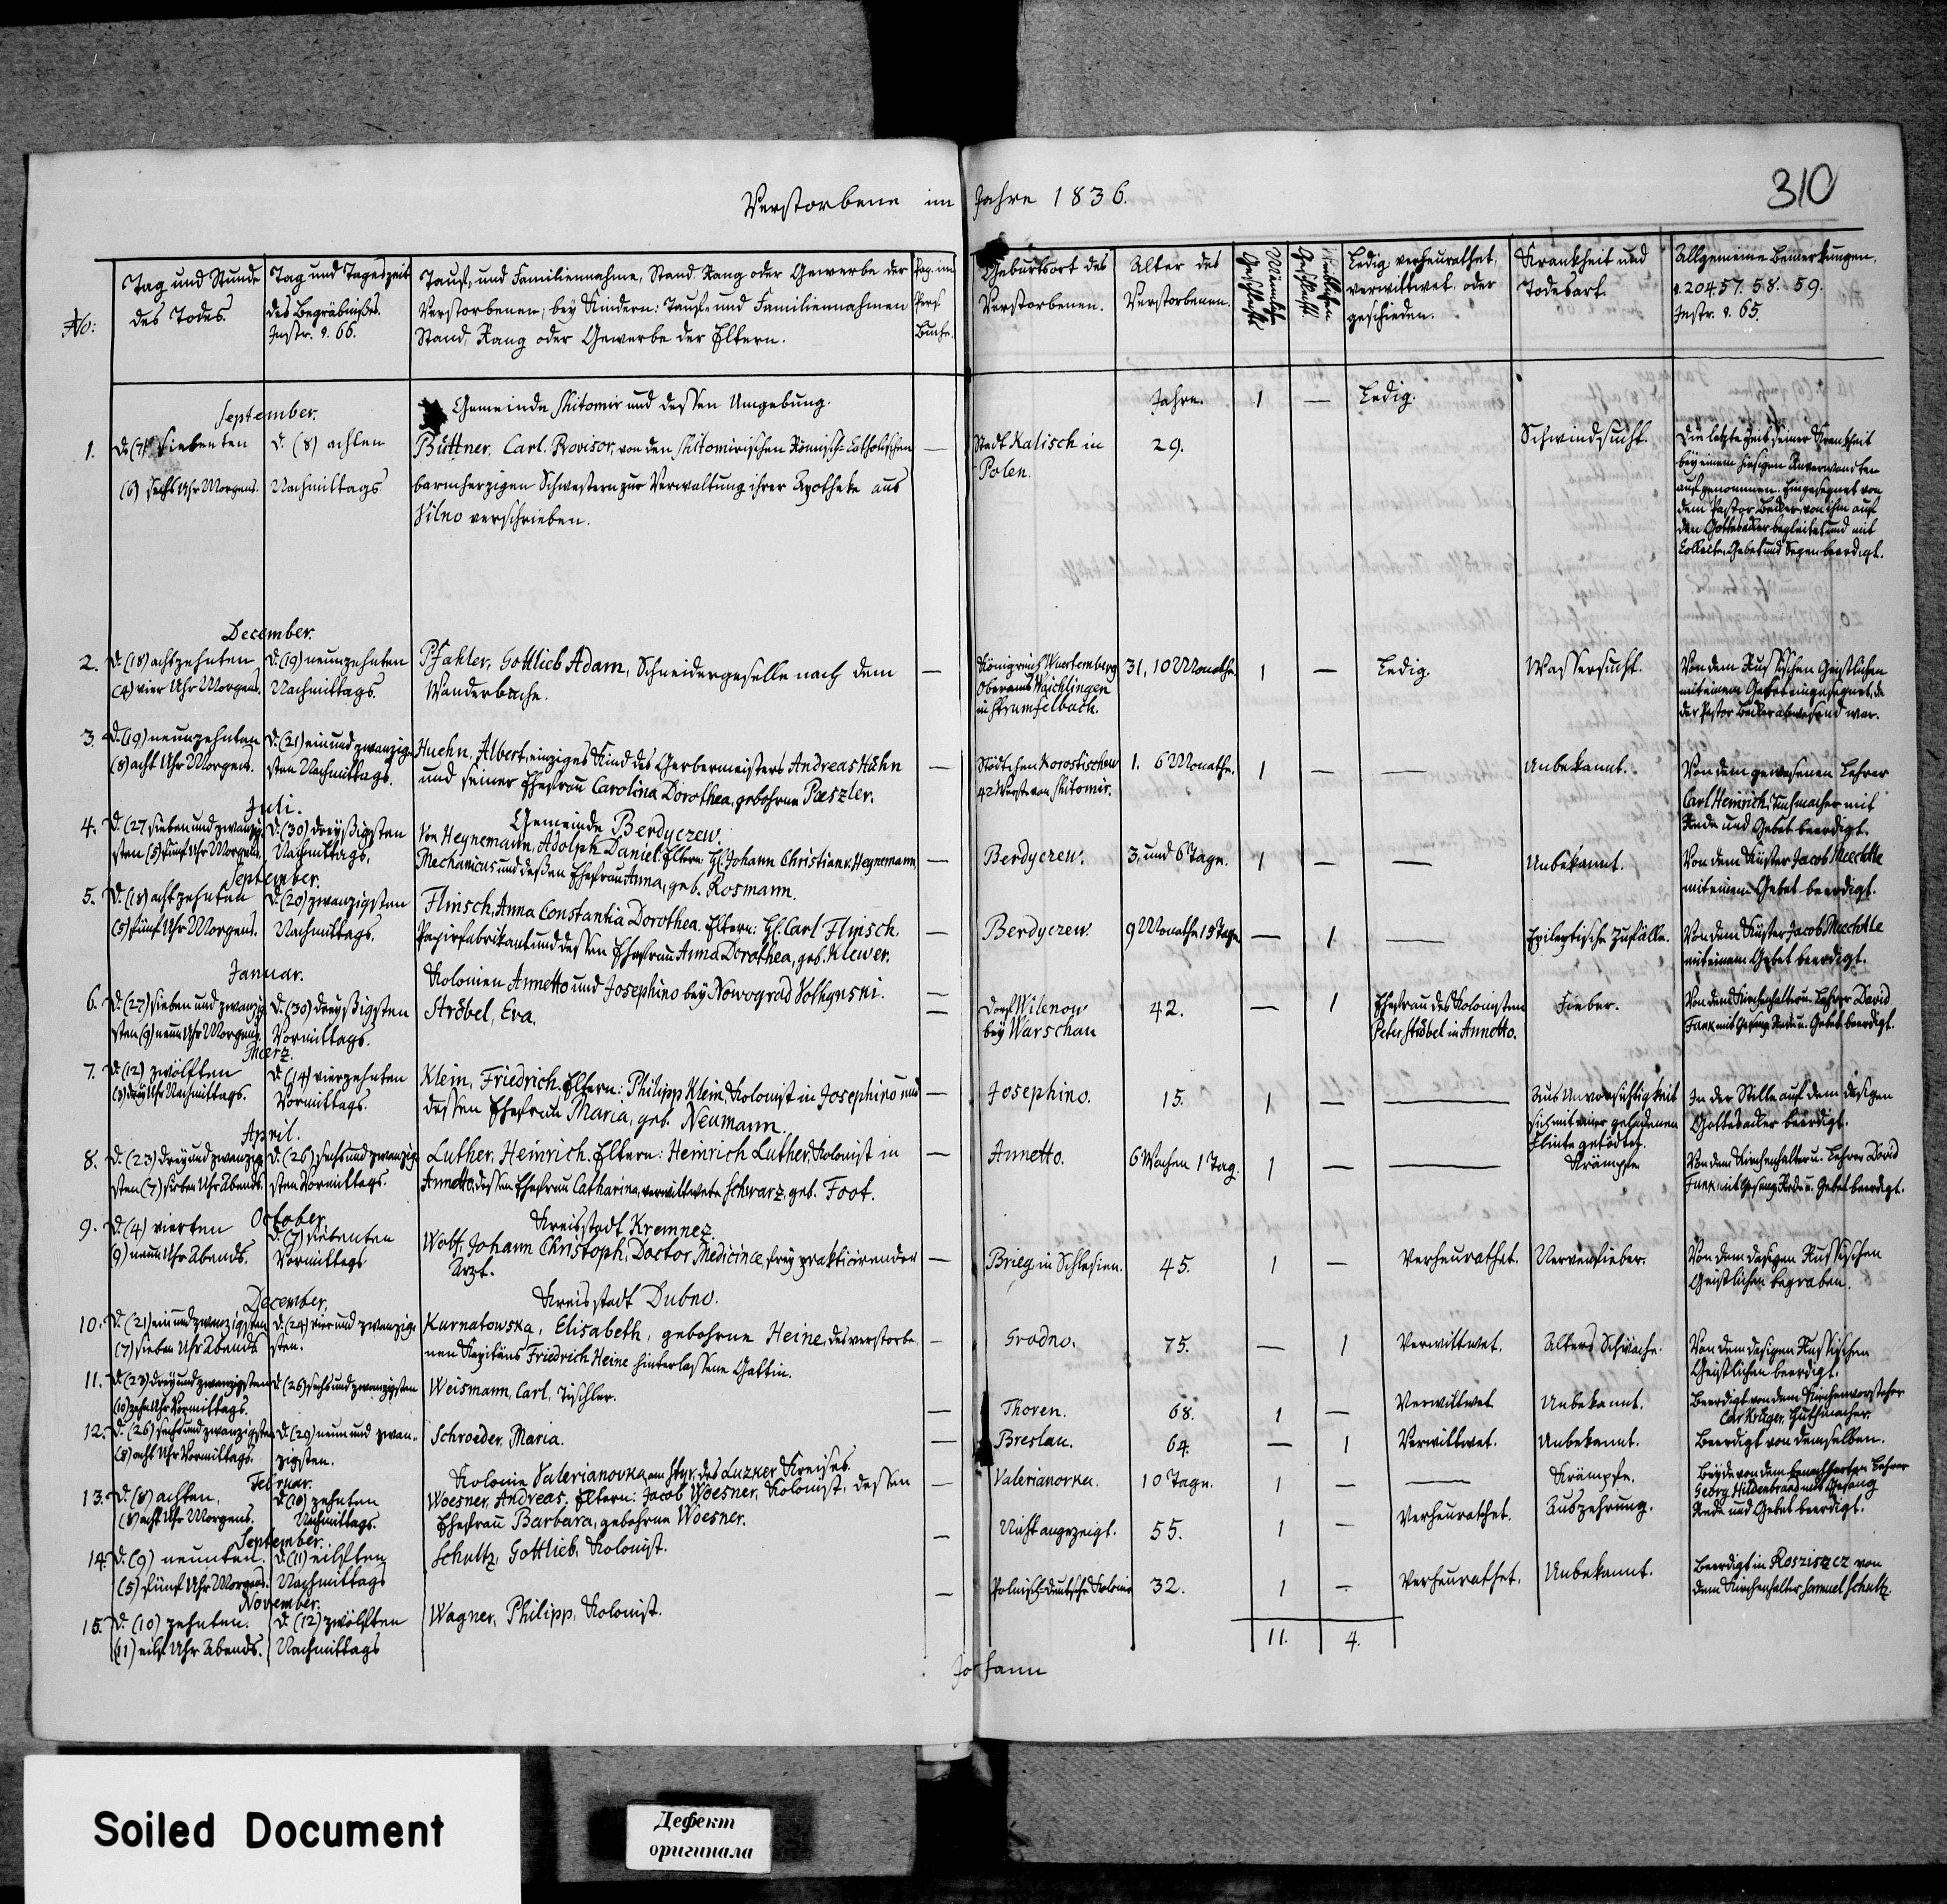 310
Verstorbene im Jahre 1836.
No:
Tag und Stunde
des Todes.
Tag und Tageszeit
des Begräbnißes.
Instr. §. 66.
Tauf- und Familiennahme, Stand, Rang oder Gewerbe der
Verstorbenen; bey Kindern: Tauf- und Familiennahmen
Stand, Rang oder Gewerbe der Eltern.
Pag. im
Pers.
Buche.
Geburtsort des
Verstorbenen.
Alter des
Verstorbenen.
Männlichen
Geschlechts
Weiblichen
Geschlechts.
Ledig, verheurathet,
verwittwet oder
geschieden.
Krankheit und
Todesart.
Allgemeine Bemerkungen.
§. 204. 57. 58. 59.
Instr. §. 65.
September.
Gemeinde Shitomir und dessen Umgebung.
Jahre. 1 — Ledig.
1. D. (7) siebenten
(6) sechs Uhr Morgens.
d. (8) achten
Nachmittags
Büttner, Carl. Provisor, von den Shitomirischen Römisch-Catholischen
barmherzigen Schwestern zur Verwaltung ihrer Apotheke aus
Vilno verschrieben.
—
Stadt Kalisch in
Polen.
29.
Schwindsucht.
Die letzte Zeit seiner Krankheit
bey einem hiesigen Anverwandten
aufgenommen. Eingesegnet von
dem Pastor Becker, von ihm auf
den Gottesacker begleitet und mit
Collecte, Gebet und Segen beerdigt.
December.
2. D. (18) achtzehnten
(4) vier Uhr Morgens.
D. (19) neunzehnten
Nachmittags.
Pfahler, Gottlieb Adam, Schneidergeselle nach dem
Wanderbuche.
—
Königreich Wuertemberg
Oberamt Waichlingen
in Strumfelbach.
31, 10 Monathe. 1 — Ledig.
Wassersucht.
Von dem Russischen Geistlichen
mit einem Gebet eingesegnet, da
der Pastor Becker abwesend war.
3. D. (19) neunzehnten
(8) acht Uhr Morgens.
D. (21) ein und zwanzig-
sten Nachmittags.
Huehn, Albert, einziges Kind des Gerbermeisters Andreas Hühn
und seiner Ehefrau Carolina Dorothea, gebohrne Paeszler.
—
Städtchen Korostischew
42 Werst von Shitomir.
1. 6 Monathe. 1 — —
Unbekannt.
Von dem gewesenen Lehrer
Carl Heinrich, Tuchmacher mit
Rede und Gebet beerdigt.
Juli.
Gemeinde Berdyczew.
4. D. (27 sieben und zwanzig-
sten (5) fünf Uhr Morgens.
D. (30) dreyßigsten
Nachmittags.
Von Heynemann, Adolph Daniel. Eltern: H. Johann Christian v. Heynemann,
Mechanicus und deßen Ehefrau Anna, geb. Rosmann.
—
Berdyczew.
3, und 6 Tage. 1 — —
Unbekannt.
Von dem Küster Jacob Meechtle
mit einem Gebet beerdigt.
September.
5. D. (18) achtzehnten
(5) fünf Uhr Morgens.
D. (20) zwanzigsten
Nachmittags.
Flinsch, Anna Constantia Dorothea. Eltern: H. Carl Flinsch,
Papierfabrikant und dessen Ehefrau Anna Dorothea, geb. Klewer.
—
Berdyczew.
9 Monathe 15 Tage — 1 —
Epileptische Zufälle.
Von dem Küster Jacob Meechtle
mit einem Gebet beerdigt.
Januar.
Kolonien Annetto und Josephino bey Nowograd Volhynski.
6. D. (27) sieben und zwanzig-
sten (9) neun Uhr Morgens.
D. (30) dreyßigsten
Vormittags.
Ströbel, Eva.
—
Dorf Wilenow
bey Warschau
42. — 1
Ehefrau des Kolonisten
Peter Ströbel in Annetto.
Fieber.
Von dem Kirchenhalter u. Lehrer David
Funk mit Gesang, Rede u. Gebet beerdigt.
Maerz.
7. D. (12) zwölften
(3) drey Uhr Nachmittags.
D. (14) vierzehnten
Vormittags.
Klein, Friedrich. Eltern: Philipp Klein, Kolonist in Josephino und
dessen Ehefrau Maria, geb. Neumann.
—
Josephino.
15. 1 — —
Aus Unvorsichtigkeit
sich mit einer geladenen
Flinte getödtet.
In der Stille auf dem dasigen
Gottesacker beerdigt.
April.
8. D. (23) drey und zwanzig-
sten (7) sieben Uhr Abends.
D. (26) sechs und zwanzig-
sten Vormittags.
Luther, Heinrich. Eltern: Heinrich Luther, Kolonist in
Annetto, dessen Ehefrau Catharina, verwittwete Schwarz, geb. Foot.
—
Annetto.
6 Wochen 1 Tag. 1 — —
Krämpfe
Von dem Kirchenhalter u. Lehrer David
Funk mit Gesang, Rede u. Gebet beerdigt.
October.
Kreisstadt Kremnez.
9. D. (4) vierten
(9) neun Uhr Abends.
D. (7) siebenten
Vormittags
Wolf, Johann Christoph, Doctor Medicinae, frey prakticirender
Arzt.
—
Brieg in Schlesien.
45. 1 — Verheurathet.
Nervenfieber.
Von dem dasigen Russischen
Geistlichen begraben.
December.
Kreisstadt Dubno.
10. D. (21) ein und zwanzigsten
(7) sieben Uhr Abends
D. (24) vier und zwanzig-
sten.
Kurnatowska, Elisabeth, gebohrne Heine, des verstorbe-
nen Kapitäns Friedrich Heine hinterlassene Gattin.
—
Grodno.
75. — 1 Verwittwet.
Alters Schwäche.
Von dem dasigen Russischen
Geistlichen beerdigt.
11. D. (23) drey und zwanzigsten
(10) zehn Uhr Vormittags.
D. (26) sechs und zwanzigsten
Weismann, Carl, Tischler.
—
Thoren.
68. 1 — Verwittwet
Unbekannt.
Beerdigt von dem Kirchenvorsteher
Carl Krüger, Huthmacher.
12. D. (26) sechs und zwanzigsten
(8) acht Uhr Vormittags.
D. (29) neun und zwan-
zigsten.
Schroeder, Maria.
—
Breslau.
64. — 1 Verwittwet.
Unbekannt.
Beerdigt von demselben.
Februar.
Kolonie Valerianovka am Styr, des Luzker Kreises.
13. D. (8) achten,
(8) acht Uhr Morgens.
D. (10) zehnten
Nachmittags.
Woesner, Andreas. Eltern: Jacob Woesner, Kolonist, dessen
Ehefrau Barbara, gebohrne Woesner.
—
Valerianovka.
10 Tage. 1 — —
Krämpfe.
Beyde von dem benachbarten Lehrer
Georg Hildenbrand mit Gesang
Rede und Gebet beerdigt.
September.
14. D. (9) neunten.
(5) fünf Uhr Morgens.
D. (11) eilften
Nachmittags
Schultz, Gottlieb, Kolonist.
—
Nicht angezeigt.
55. 1 — Verheurathet.
Auszehrung.
November.
15. D. (10) zehnten.
(11) eilf Uhr Abends.
D. (12) zwölften
Nachmittags
Wagner, Philipp, Kolonist.
—
Polnisch-deutsche Kolonie
32. 1 — Verheurathet.
Unbekannt.
Beerdigt in Rosziszcz von
dem Kirchenhalter Samuel Schultz.
11. 4.
Johann
Soiled Document
Дефект
оригинала